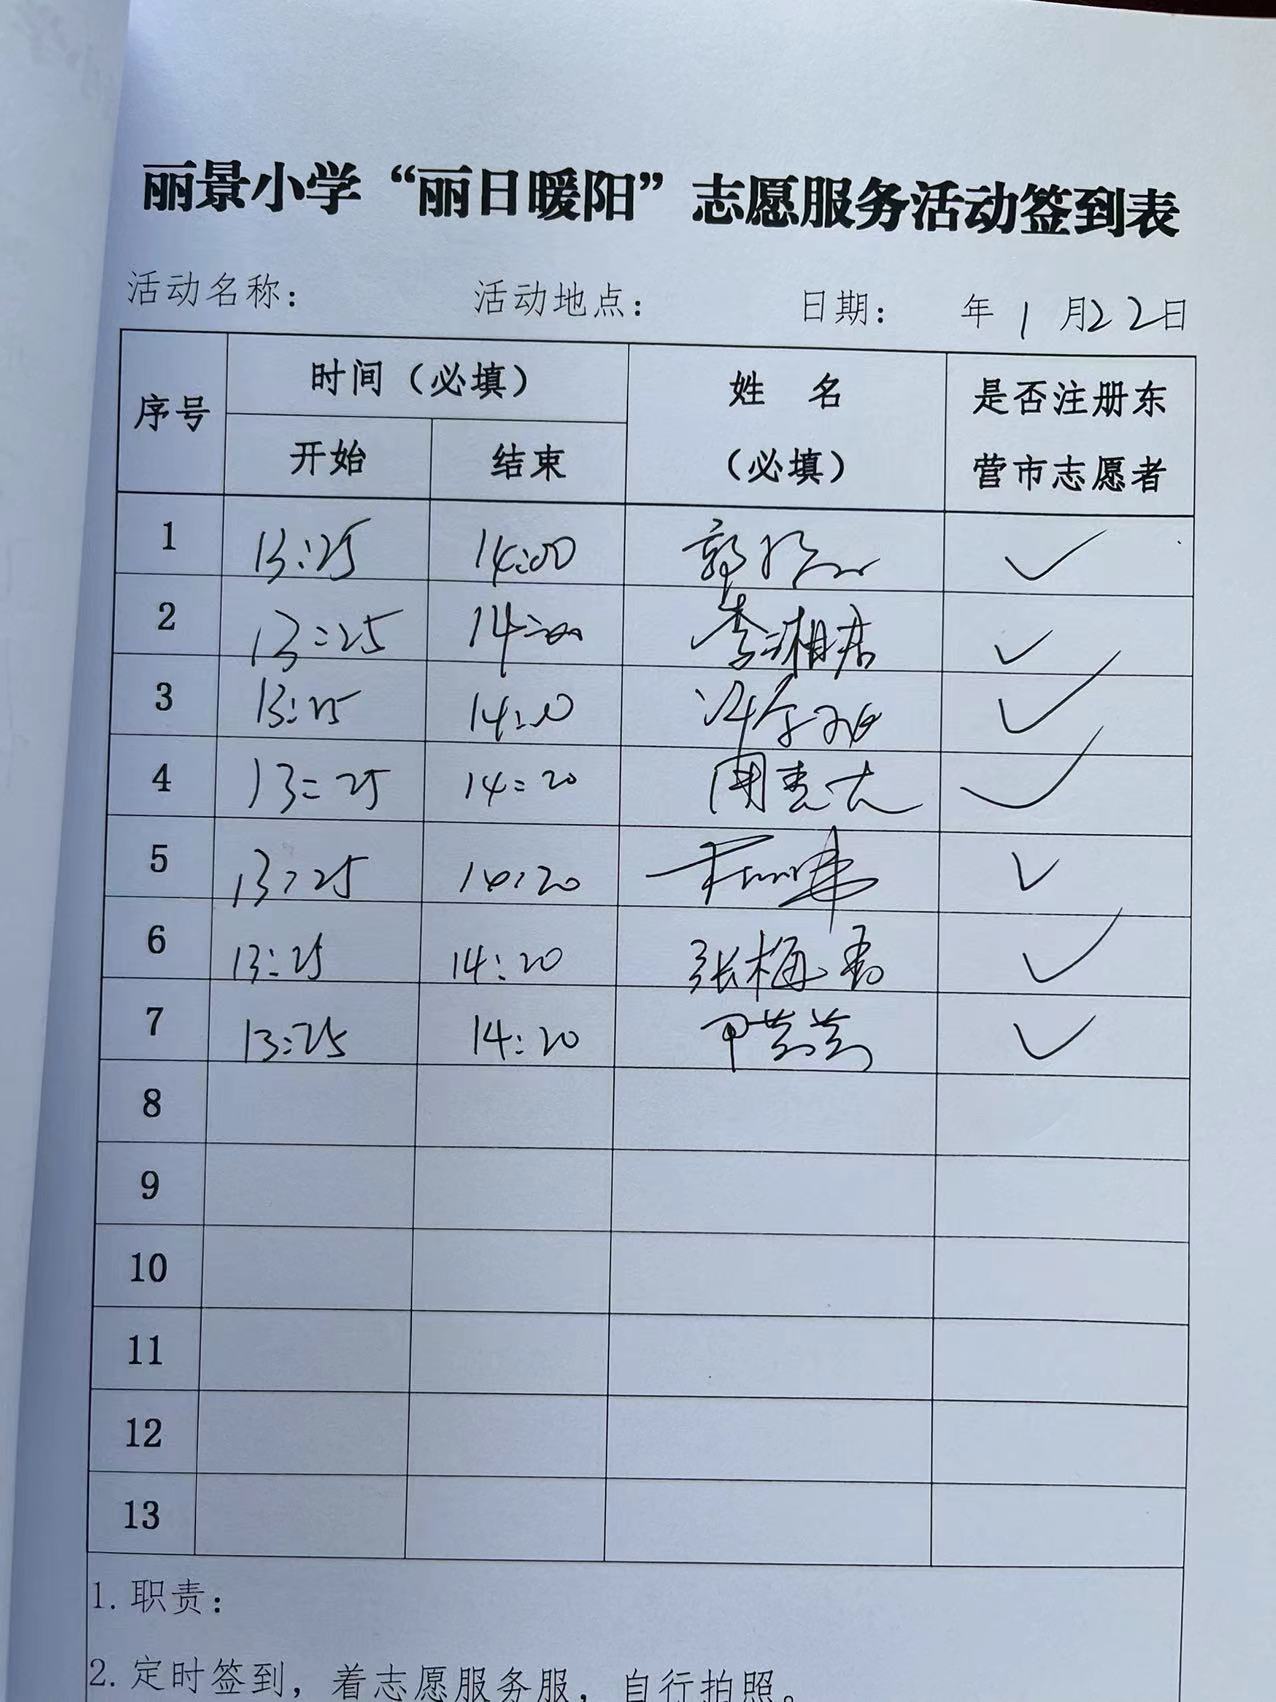 丽景小学“丽日暖阳”志愿服务活动签到表
活动名称： 活动地点： 日期： 年 1 月22日
序号 时间（必填） 姓 名（必填） 是否注册东营市志愿者
开始 结束
1 13:25 14:00 郭 ✓
2 13:25 14:20 李湘君 ✓
3 13:25 14:20 ✓
4 13:25 14:20 周 ✓
5 13:25 14:20 ✓
6 13:25 14:20 张梅香 ✓
7 13:25 14:20 ✓
8
9
10
11
12
13
1. 职责：
2. 定时签到，着志愿服务服，自行拍照。